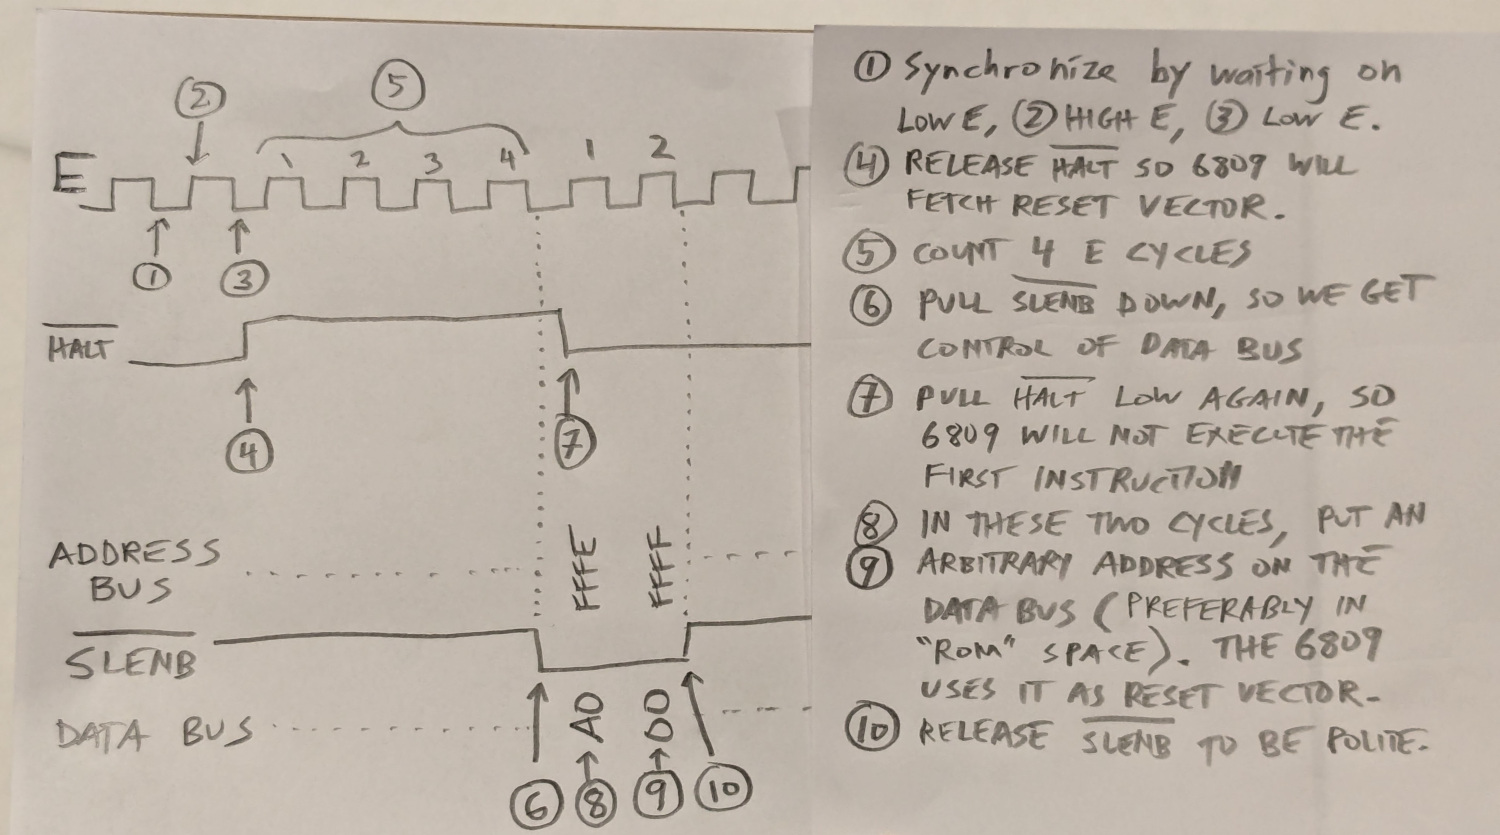 ② ⑤
1 2 3 4 1 2
E
① ③
HALT
④ ⑦
ADDRESS
BUS
FFFE FFFF
SLENB
DATA BUS
AD DD
⑥ ⑧ ⑨ ⑩
① Synchronize by waiting on
LOW E, ② HIGH E, ③ LOW E.
④ RELEASE HALT SO 6809 WILL
FETCH RESET VECTOR.
⑤ COUNT 4 E CYCLES
⑥ PULL SLENB DOWN, SO WE GET
CONTROL OF DATA BUS
⑦ PULL HALT LOW AGAIN, SO
6809 WILL NOT EXECUTE THE
FIRST INSTRUCTION
⑧ IN THESE TWO CYCLES, PUT AN
⑨ ARBITRARY ADDRESS ON THE
DATA BUS (PREFERABLY IN
"ROM" SPACE). THE 6809
USES IT AS RESET VECTOR.
⑩ RELEASE SLENB TO BE POLITE.